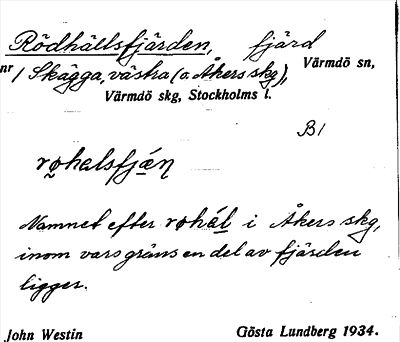 Rödhällsfjärden, fjärd
nr / Skägga, västra (o. Åkers skg), Värmdö sn,
Värmdö skg, Stockholms l.
B1
røhalsfjǽ̣ṇ
Namnet efter røhál i Åkers skg,
inom vars gräns en del av fjärden
ligger.
John Westin Gösta Lundberg 1934.